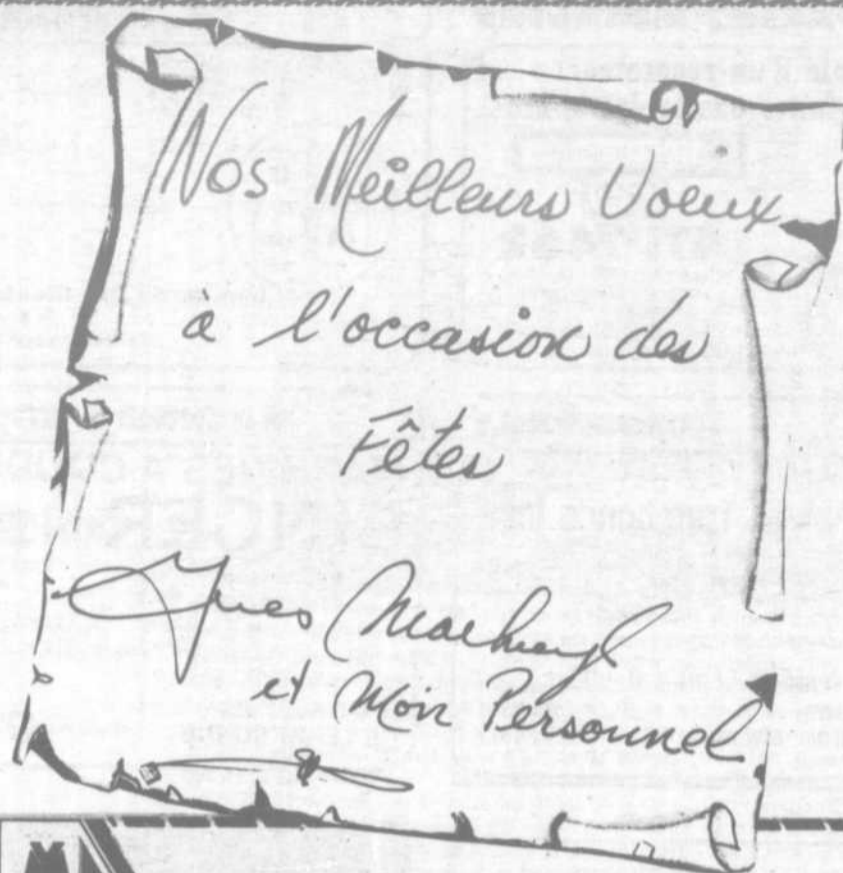 Nos Meilleurs Voeux
à l'occasion des
Fêtes
Yves
et Mon Personnel